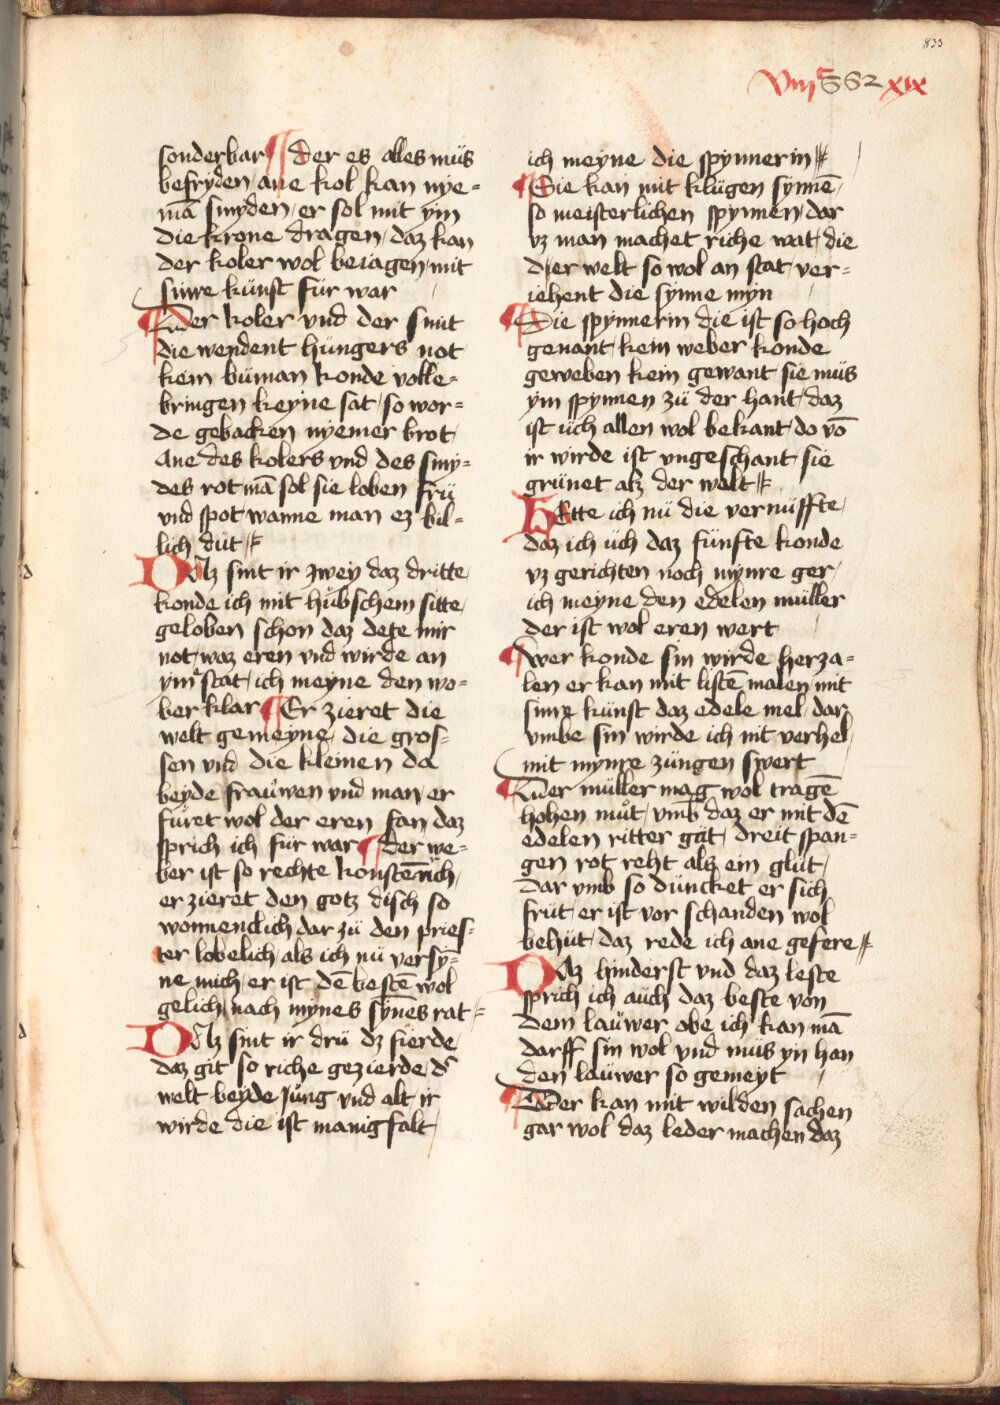 833
viij^c 562 xix
sonderbar ¶ der es alles müs
befryden / ane kol kan nye=
mā smyden / er sol mit ym
die krone dragen / daz kan
der koler wol beiagen / mit
sinre künst für war
¶ Der koler vnd der smit
die wendent hüngers not
kein büman konde volle=
bringen keyne sat / so wor=
de gebacken nyemer brot /
Ane des kolers vnd des smy=
des rot mā sol sie loben frü
vnd spot wanne man ez bil=
lich düt
DAz sint ir zwey daz dritte /
konde ich mit hübschem sitte /
geloben schon daz dete mir
not / waz eren vnd wirde an
ym stat / ich meyne den we=
ber klar ¶ Er zieret die
welt gemeyne / die gros=
sen vnd die kleinen da
beyde frauwen vnd man / er
füret wol der eren fan / daz
sprich ich für war ¶ der we=
ber ist so rechte konstēnrich /
er zieret den gotz disch so
wonnenclich dar zü den pries=
ter lobelich / als ich nü versȳ=
ne mich / er ist dē bestē wol
gelich / nach mynes sȳnes rat
DAz sint ir drü dz fierde /
daz git so riche gezierde / d'
welt beyde Jüng vnd alt ir
wirde die ist manigfalt /
ich meyne die spynnerin
¶ Sie kan mit klügen synnē /
so meisterlichen spynnen / dar
vz man machet riche wat / die
der welt so wol an stat / ver=
iehent die synne myn
¶ Die spynnerin die ist so hoch
genant / kein weber konde
geweben kein gewant / sie müs
ym spynnen zü der hant / daz
ist üch allen wol bekant / do vō
ir wirde ist vngeschant / sie
grünet alz der walt
HEtte ich nü die vernüffte /
daz ich üch daz fünfte konde
vz gerichten noch mynre ger /
ich meyne den edelen müller
der ist wol eren wert
¶ wer konde sin wirde herza=
len er kan mit listē malen mit
sinre künst daz edele mel / dar
vmbe sin wirde ich nit verhel /
mit mynre züngen swert
¶ Der müller mag wol tragē
hohen müt / vmb daz er mit dē
edelen ritter güt / dreit span=
gen rot reht als ein glüt /
Dar vmb so düncket er sich
früt / er ist vor schanden wol
behüt / daz rede ich ane gefere
DAz hynderst vnd daz leste
sprich ich aüch daz beste von
dem laüwer obe ich kan mā
darff sin wol vnd müs yn han
den laüwer so gemeyt
¶ Der kan mit wilden sachen
gar wol daz leder machen daz